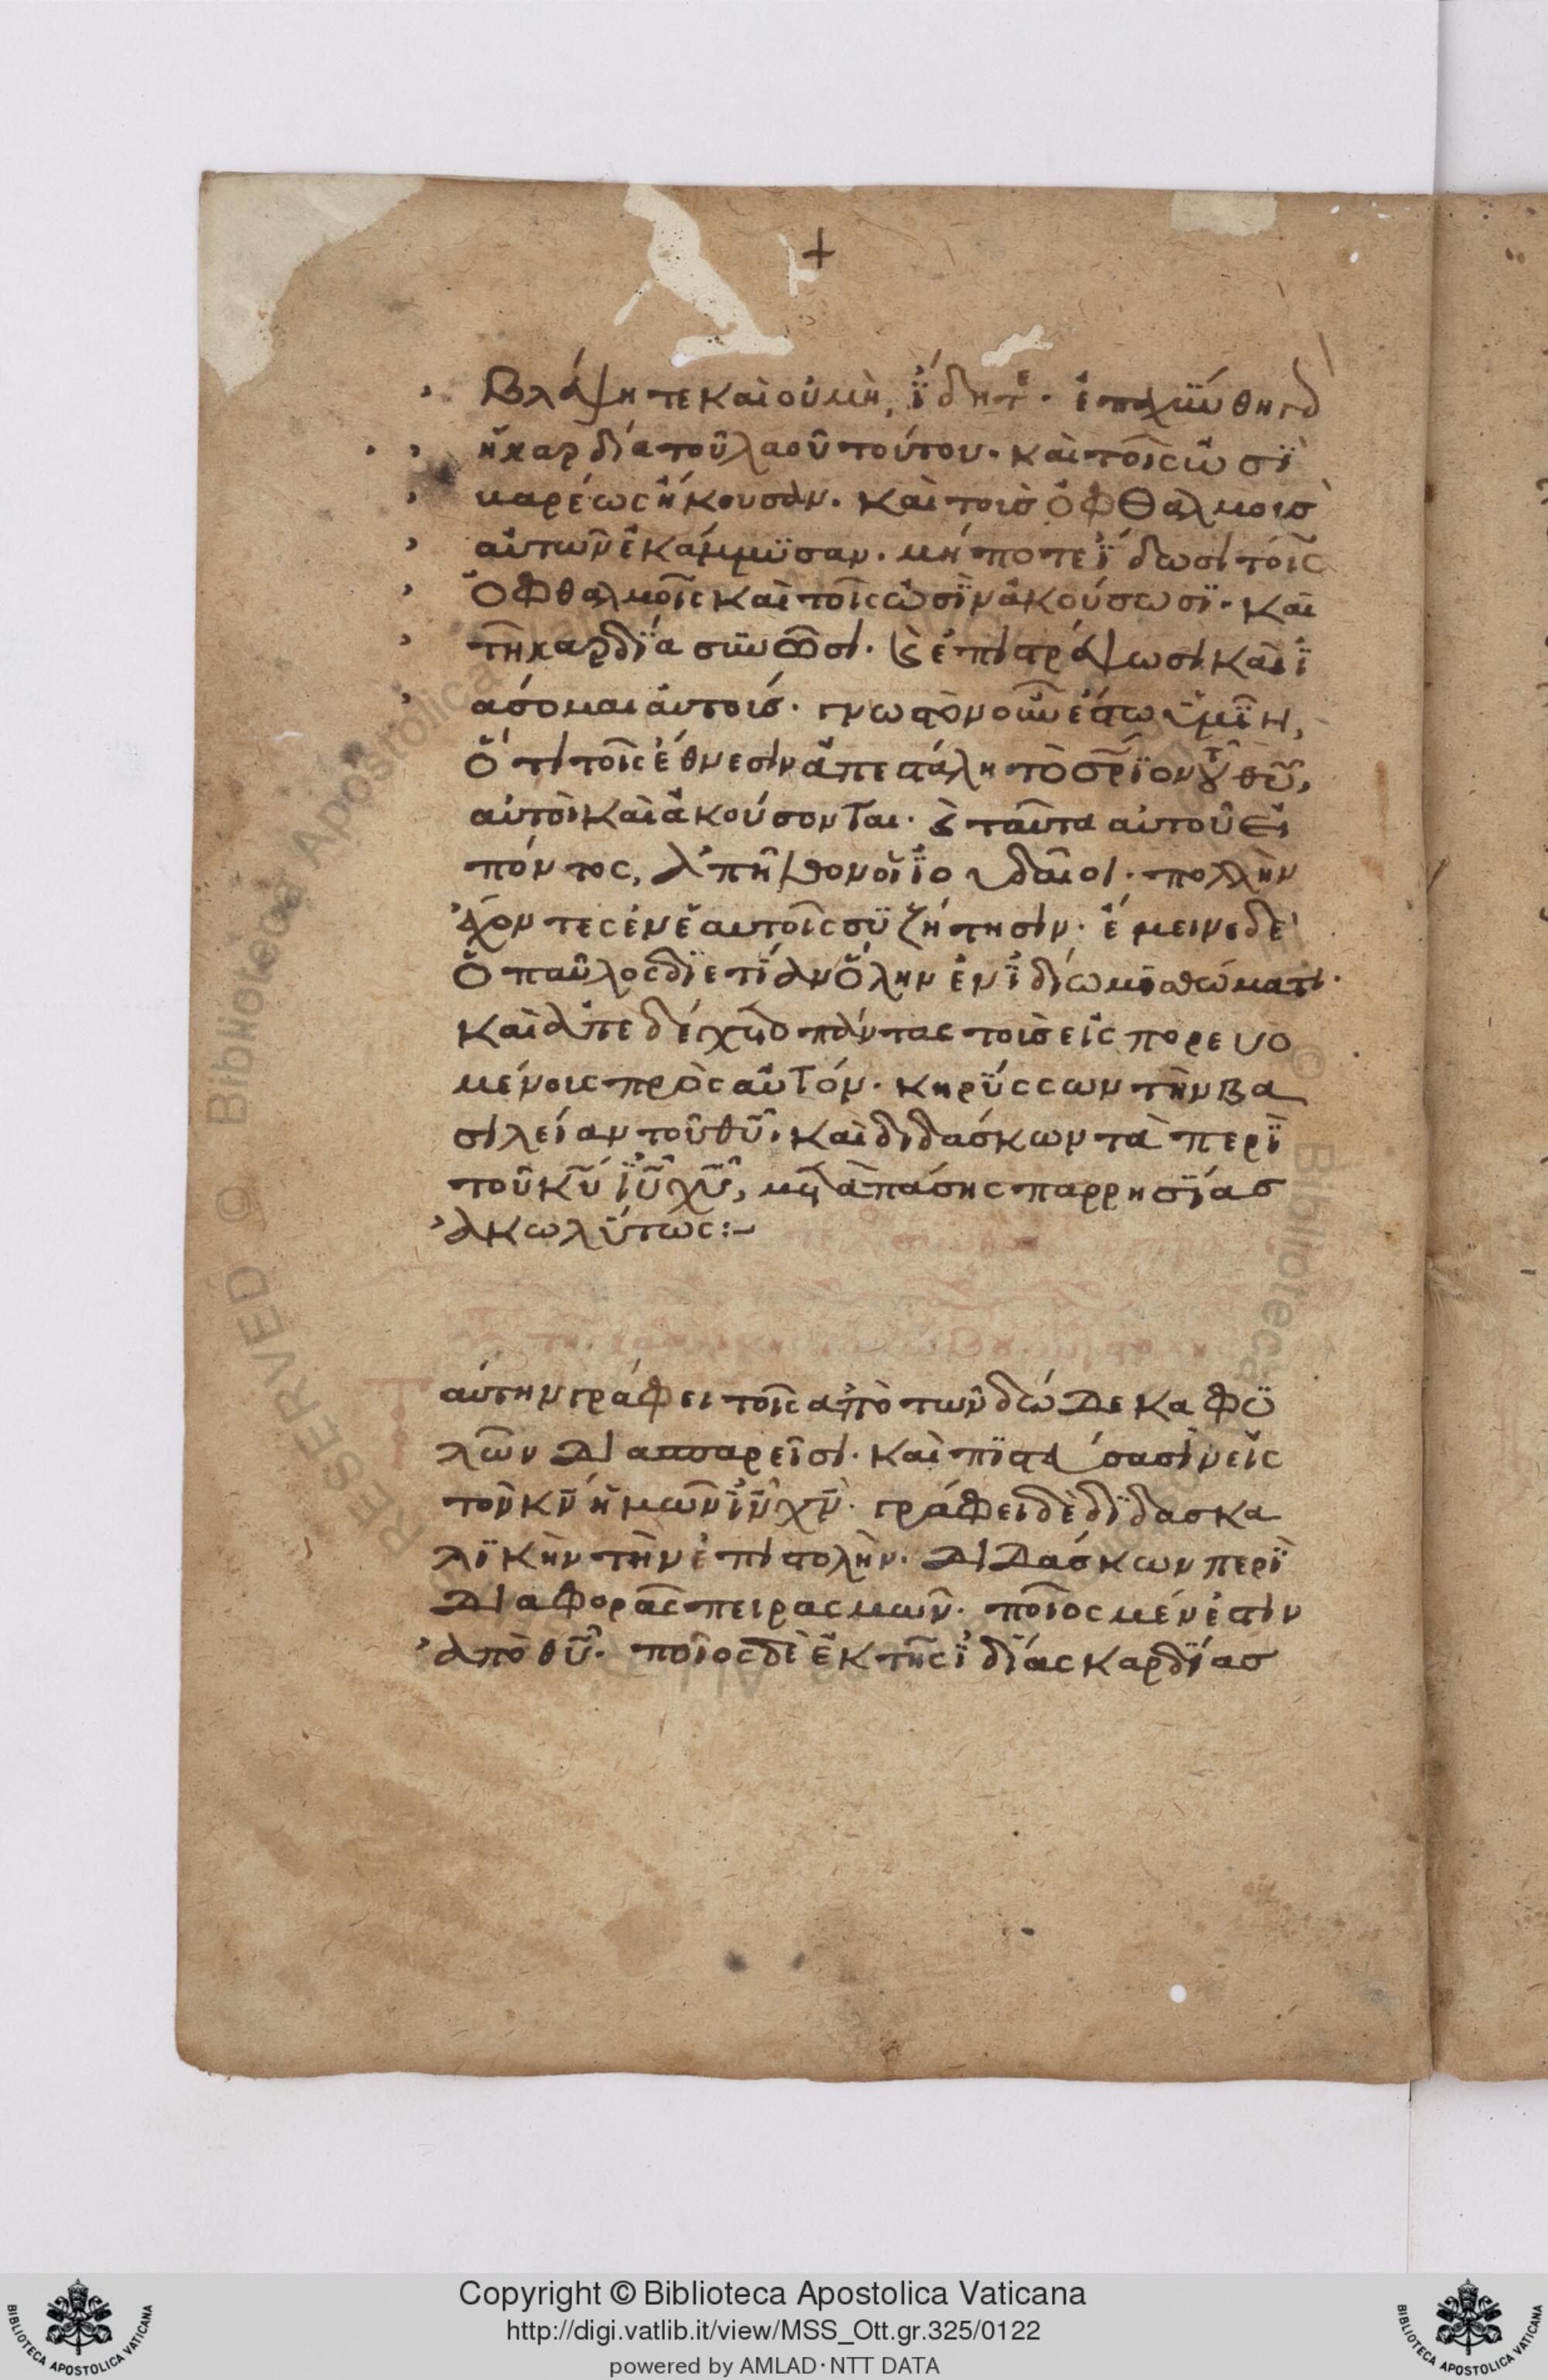 +
βλέψητε καὶ οὐ μὴ, ἴδητε· ἐπαχύνθη γὰρ
ἡ καρδία τοῦ λαοῦ τούτου· καὶ τοῖς ὠσὶ
βαρέως ἤκουσαν· καὶ τοὺς ὀφθαλμοὺς
αὐτῶν ἐκάμμϋσαν· μήποτε ἴδωσι τοῖς
ὀφθαλμοῖς καὶ τοῖς ὠσὶν ἀκούσωσϊ· καὶ
τῆ καρδΐα συνῶσι· ϗ ἐπιστρέψωσι καὶ ἰ
άσομαι αὐτούς· γνωστὸν οὖν ἔστω ὑμῖν,
ὅτι τοῖς ἔθνεσιν ἀπεστάλη τὸ σρϊον τοῦ θυ,
αὐτοὶ καὶ ἀκούσονται· ϗ ταῦτα αὐτοῦ εἰ
πόντος, ἀπῆλθον οἱ ἰουδαῖοι· πολλὴν
ἔχοντες ἐν ἑαυτοῖς συζήτησιν· ἔμεινε δὲ
ὁ παῦλος διετίαν ὅλην ἐν ἰδίω μισθώματι·
καὶ ἀπεδέχετο πάντας τοὺς εἰσπορευο
μένους πρὸς αὐτόν· κηρύσσων τὴν βα
σιλείαν τοῦ θυ· καὶ διδάσκων τὰ περὶ
τοῦ κυ ιυ χυ, μετὰ πάσης παρρησΐας
ἀκωλύτως:–
αύτην γράφει τοῖς ἀπὸ τῶν δώδεκα φϋ
λῶν διασπαρεῖσι· καὶ πϊστεύσασιν εἰς
τὸν κν ἡμῶν ιν χν· γράφει δὲ δϊδασκα
λϊκὴν τὴν ἐπιστολὴν· διδάσκων περὶ
διαφορᾶς πειρασμῶν· ποῖος μέν ἐστιν
ἀπὸ θυ· ποῖος δὲ ἐκ τῆς ἰδίας καρδΐας
Copyright © Biblioteca Apostolica Vaticana
http://digi.vatlib.it/view/MSS_Ott.gr.325/0122
powered by AMLAD·NTT DATA